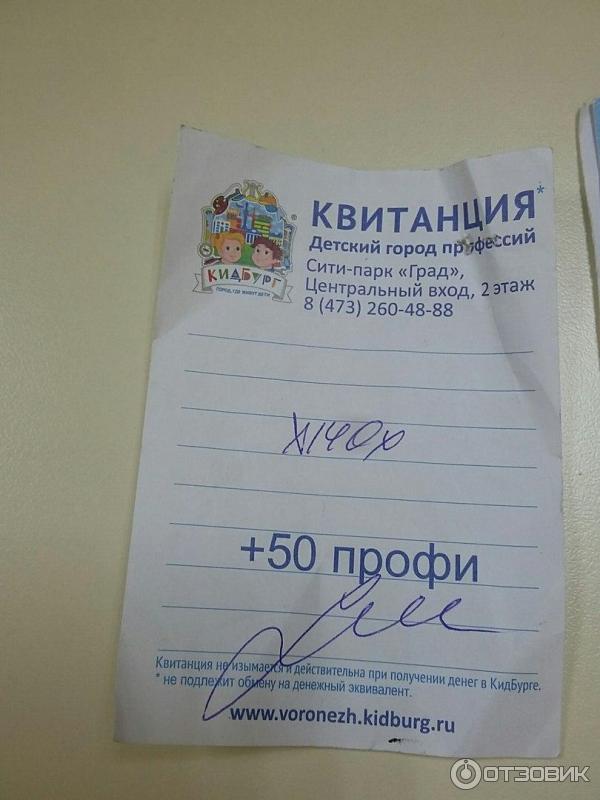 КВИТАНЦИЯ*
Детский город профессий
Сити-парк «Град»,
Центральный вход, 2 этаж
8 (473) 260-48-88
®
КИДБУРГ
ГОРОД, ГДЕ ЖИВУТ ДЕТИ
+50 профи
Квитанция не изымается и действительна при получении денег в КидБурге.
* не подлежит обмену на денежный эквивалент.
www.voronezh.kidburg.ru
ОТЗОВИК